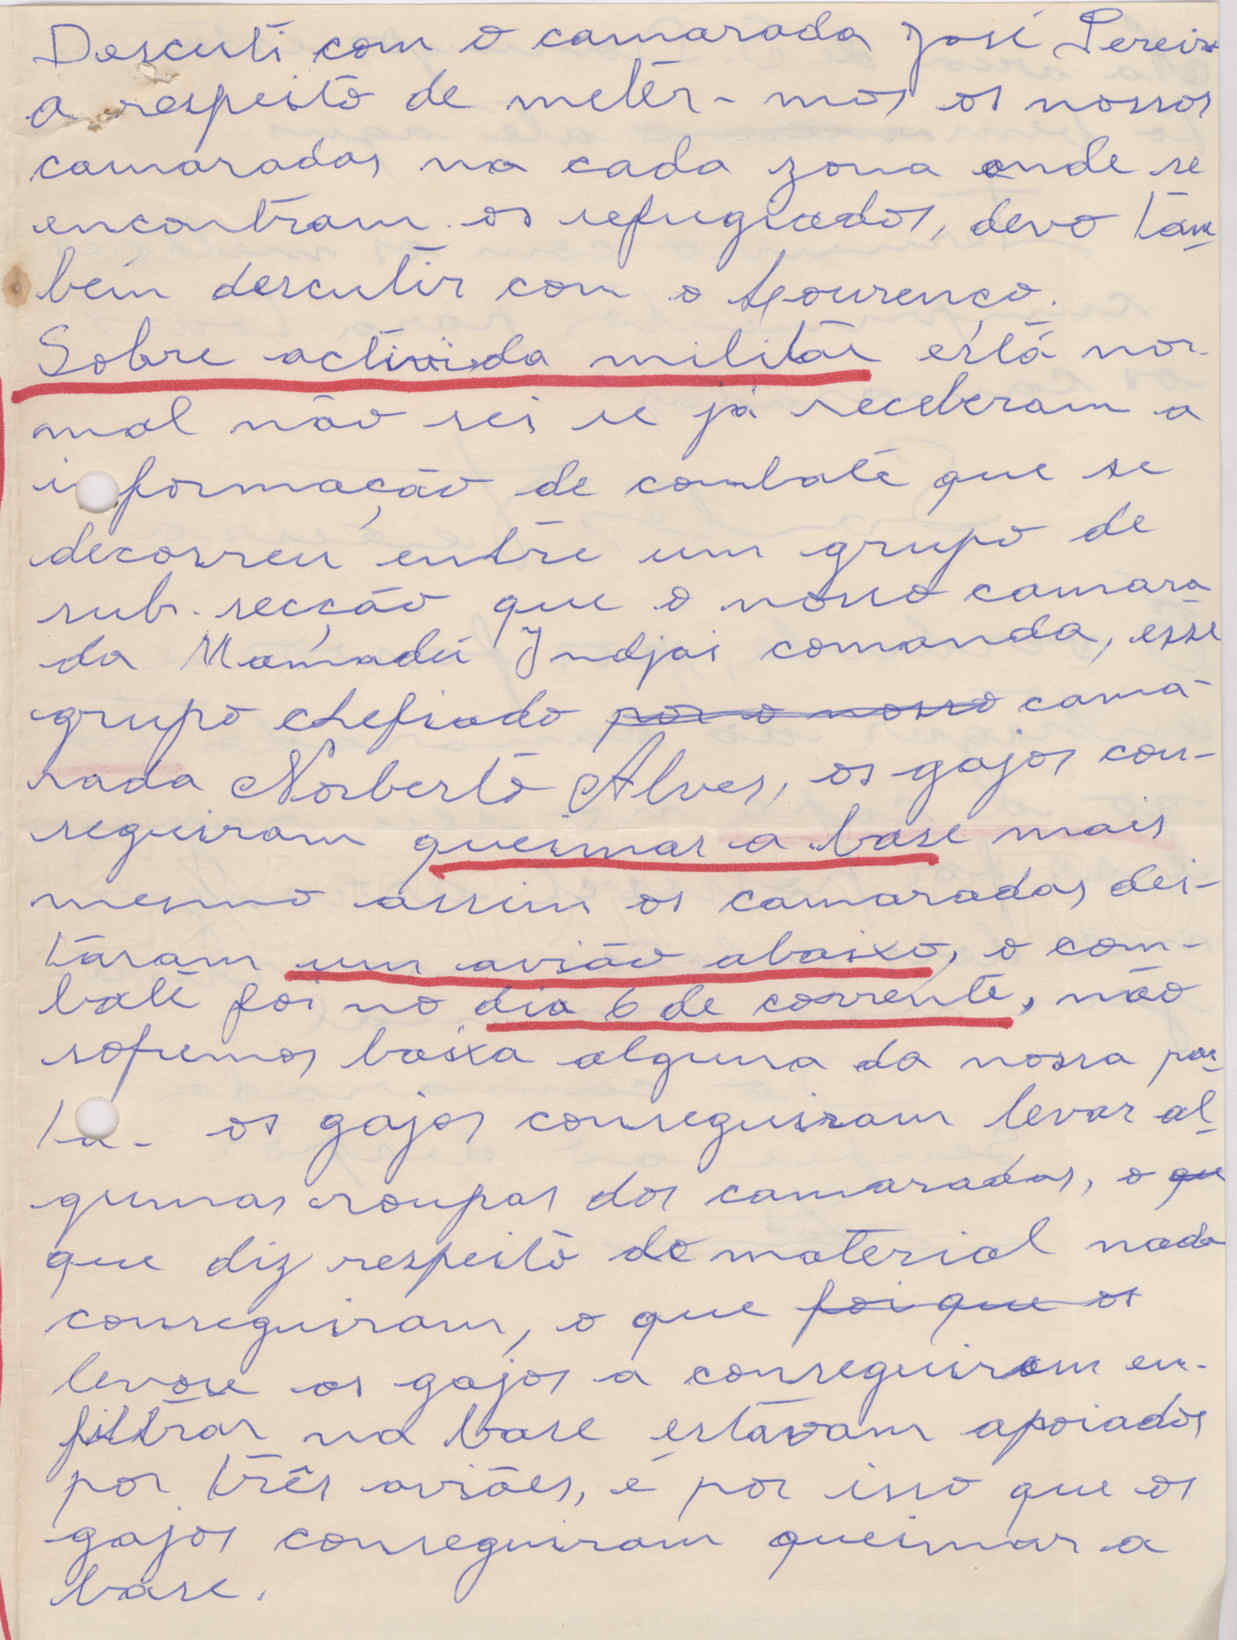 Descuti com o camarada José Pereira
a respeito de metêr-mos os nossos
camaradas na cada zona onde se
encontram os refugiados, devo tam-
bém descutir com o Lourenço.
Sobre activida militar está nor-
mal não sei se já receberam a
informação de combate que se
decorreu entre um grupo de
sub-secção que o nosso camara
da Mamadú Indjai comanda, esse
grupo chefiado por o nosso cama-
rada Norberto Alves, os gajos con-
seguiram queimar a base mais
mesmo assim os camaradas dei-
taram um avião abaixo, o com-
bate foi no dia 6 de corrente, não
sofremos baixa alguma da nossa par-
te- os gajos conseguiram levar al-
gumas roupas dos camaradas, o que
que diz respeito do material nada
conseguiram, o que foi que os
levou os gajos a conseguirem en-
filtrar na base estavam apoiados
por três aviões, é por isso que os
gajos conseguiram queimar a
base.